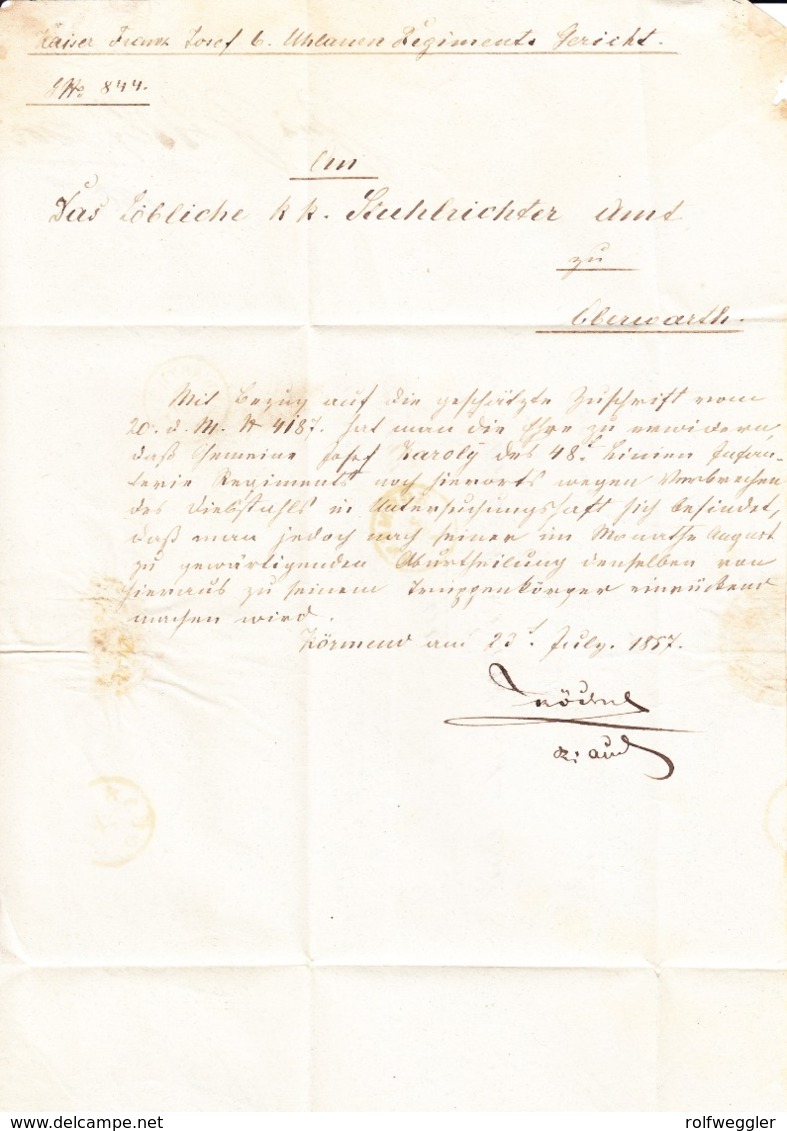 Kaiser Franz Josef 6. Uhlanen Regiments Gericht.
No 844.
An
Das Löbliche k k. Stuhlrichter Amt
zu
Oberwarth.
Mit Bezug auf die geschätzte Zuschrift vom
20. d. M. N 4187. hat man die Ehre zu erwidern,
daß Gemeine Josef Karoly des 48t. Linien Infan-
terie Regiments noch hierorts wegen Verbrechen
des Diebstahls in Untersuchungshaft sich befindet,
daß man jedoch nach seiner im Monathe August
zu gewärtigenden Aburtheilung denselben von
hieraus zu seinem Truppenkörper einrückend
machen wird.
Körmend am 23t. July. 1857.
delcampe.net
rolfweggler